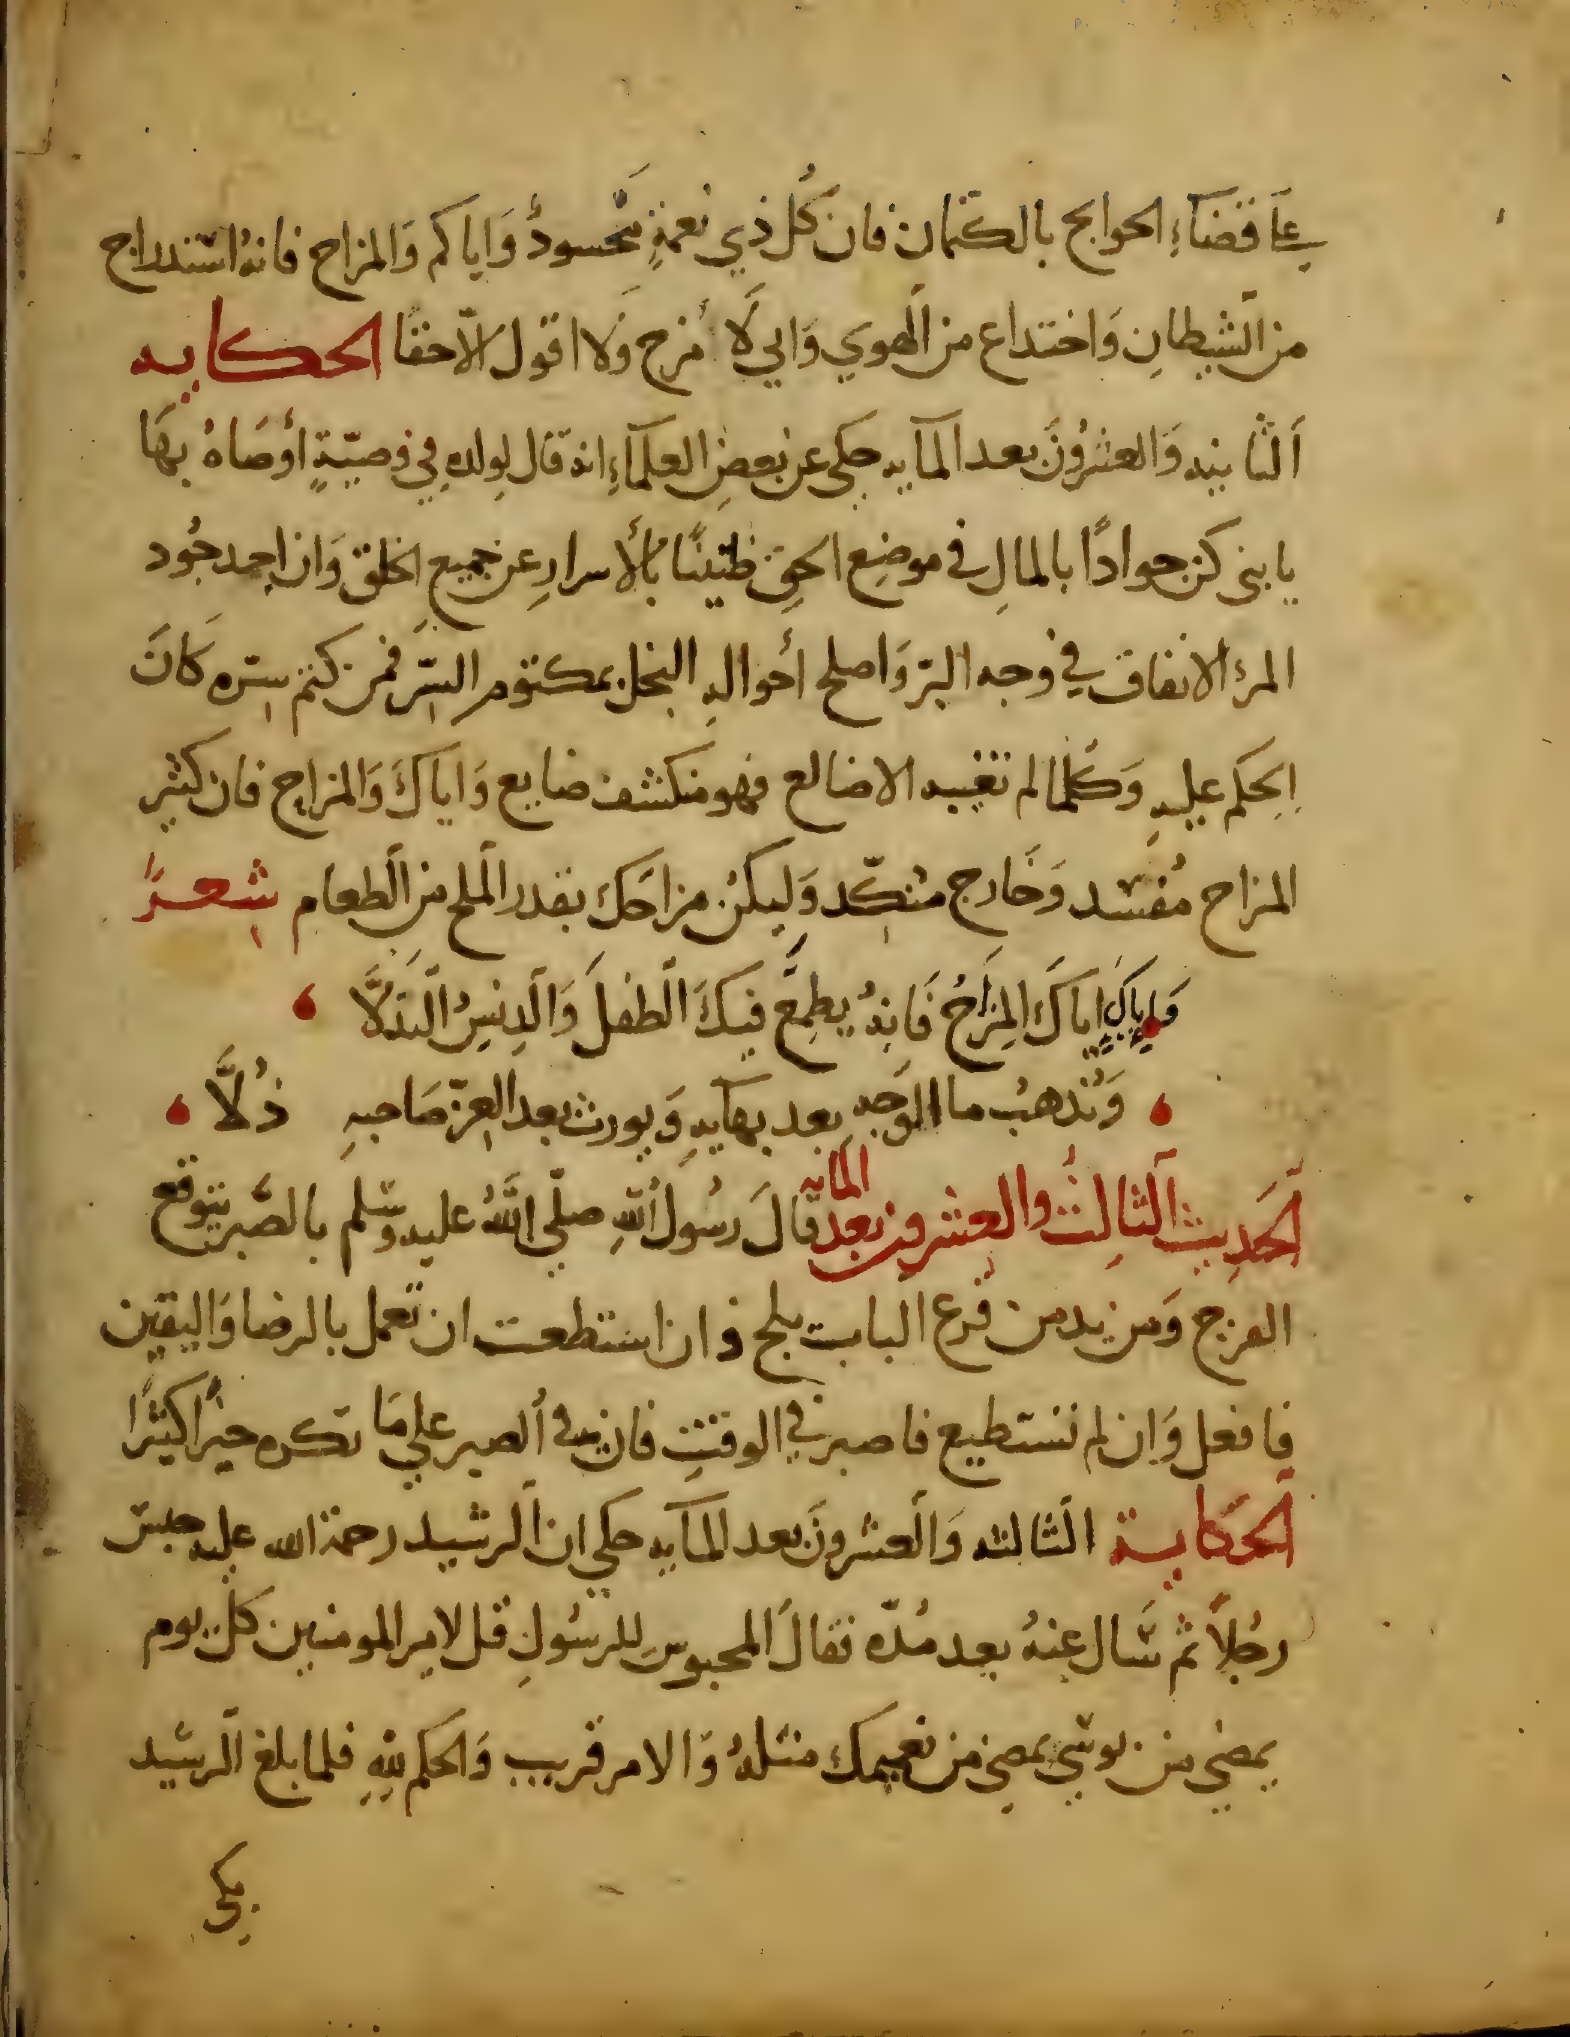 علي قضاءِ الحوايج بالكتمان فان كُل ذي نعمةٍ محسودٌ وَاياكم وَالمزاح فانهُ استدراج
من الشيطانِ وَاختداع من الهوي وَاني لَا أمزح وَلا اقول الّا حقًا الحكايه
الثانيه وَالعشرُونَ بعد المايه حكي عن بعضِ العلمآءِ انه قال لِولدهِ في وَصيّةٍ أوصَاهُ بهَا
يا بني كن جوادًا بالمالِ في موضِع الحقِ ظنينًا بالأسرارِ عن جميعِ الخلق وَان احمد جُود
المرءِ الانفاق في وجه البرّ وَاصلح أحوالهِ البخل بمكتوم السّر فمن كتم سرّه كَانَ
الحِكم عليهِ وَكلما لم تغيبه الاضالع فهو منكشف ضايع وَاياكَ وَالمزاح فان كثير
المزاح مُفسّد وَخَارج منكّد وَليكنُ مزاحَك بقدر الملح من الطعام شعرًا
فاياك اياكَ المِزَاحُ فَانهُ يطمِعُ فيكَ الطفلَ وَالدنِسُ النَذلَّا
وَتُذهبُ ما الوَجهِ بعد بهآيهِ وَيورث بعد العِزّ صَاحبهِ ذُلاَّ
الحَدِيث الثالِثُ والعشرون بعد المايه قالَ رسُول اللهِ صلّي اللَّهُ عليه وسّلم بالصَبر يتوقع
الفرج وَمن يدمن قرع الباب يلج فان استطعت ان تعمل بالرضا وَاليقين
فافعل وَان لم تستَطيع فاصبر في الوقتِ فان في الصبر علي مَا تكره خيرًا كثيرًا
الحكاية الثالثه وَالعشرونَ بعد المآيه حكي ان الرشيد رحمة الله عليه حبسَ
رجُلاً ثم سَّال عنهُ بعد مُدّه فقالَ المحبوسِ للرسُولِ قل لامير المومنين كل يوم
يمضي من بوسّي يمضي من نعيمك مثلهُ وَالامر قريب وَالحكم للهِ فلما بلغ الرسّيد
بكي